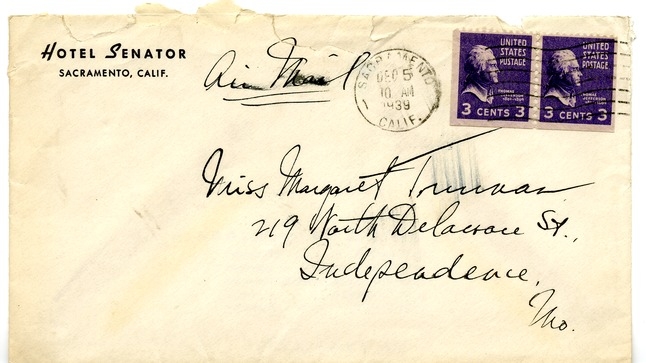 HOTEL SENATOR
SACRAMENTO, CALIF.
Air Mail
SACRAMENTO
DEC 5
10 AM
1939
CALIF.
1
UNITED
STATES
POSTAGE
THOMAS
JEFFERSON
3 CENTS 3
UNITED
STATES
POSTAGE
THOMAS
JEFFERSON
3 CENTS 3
Miss Margaret Truman
219 North Delaware St.,
Independence,
Mo.